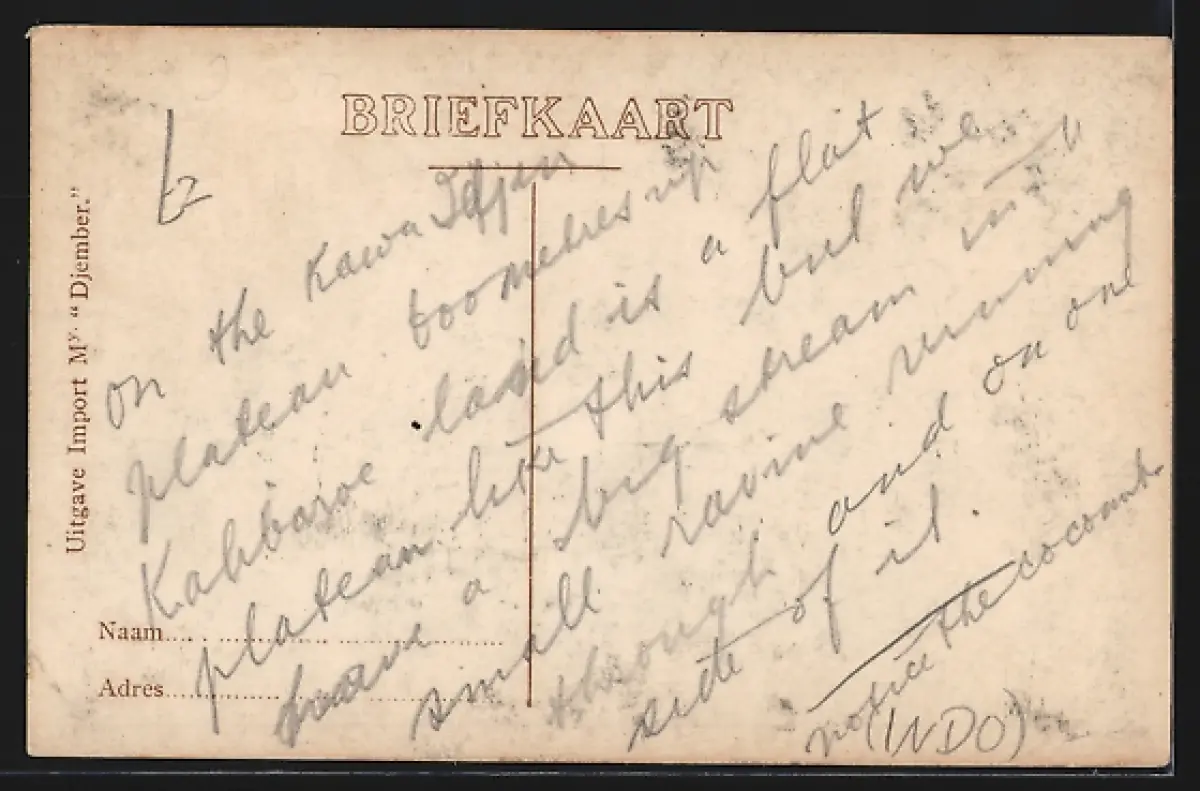 BRIEFKAART
Uitgave Import My. "Djember."
on the Kawa Idjen
plateau 600 metres up
Kahbaroe land is a flat
plateau like this but we
have a big stream in a
small ravine running
through and on one
side of it.
notice the cocoanuts
Naam
Adres
(INDO)